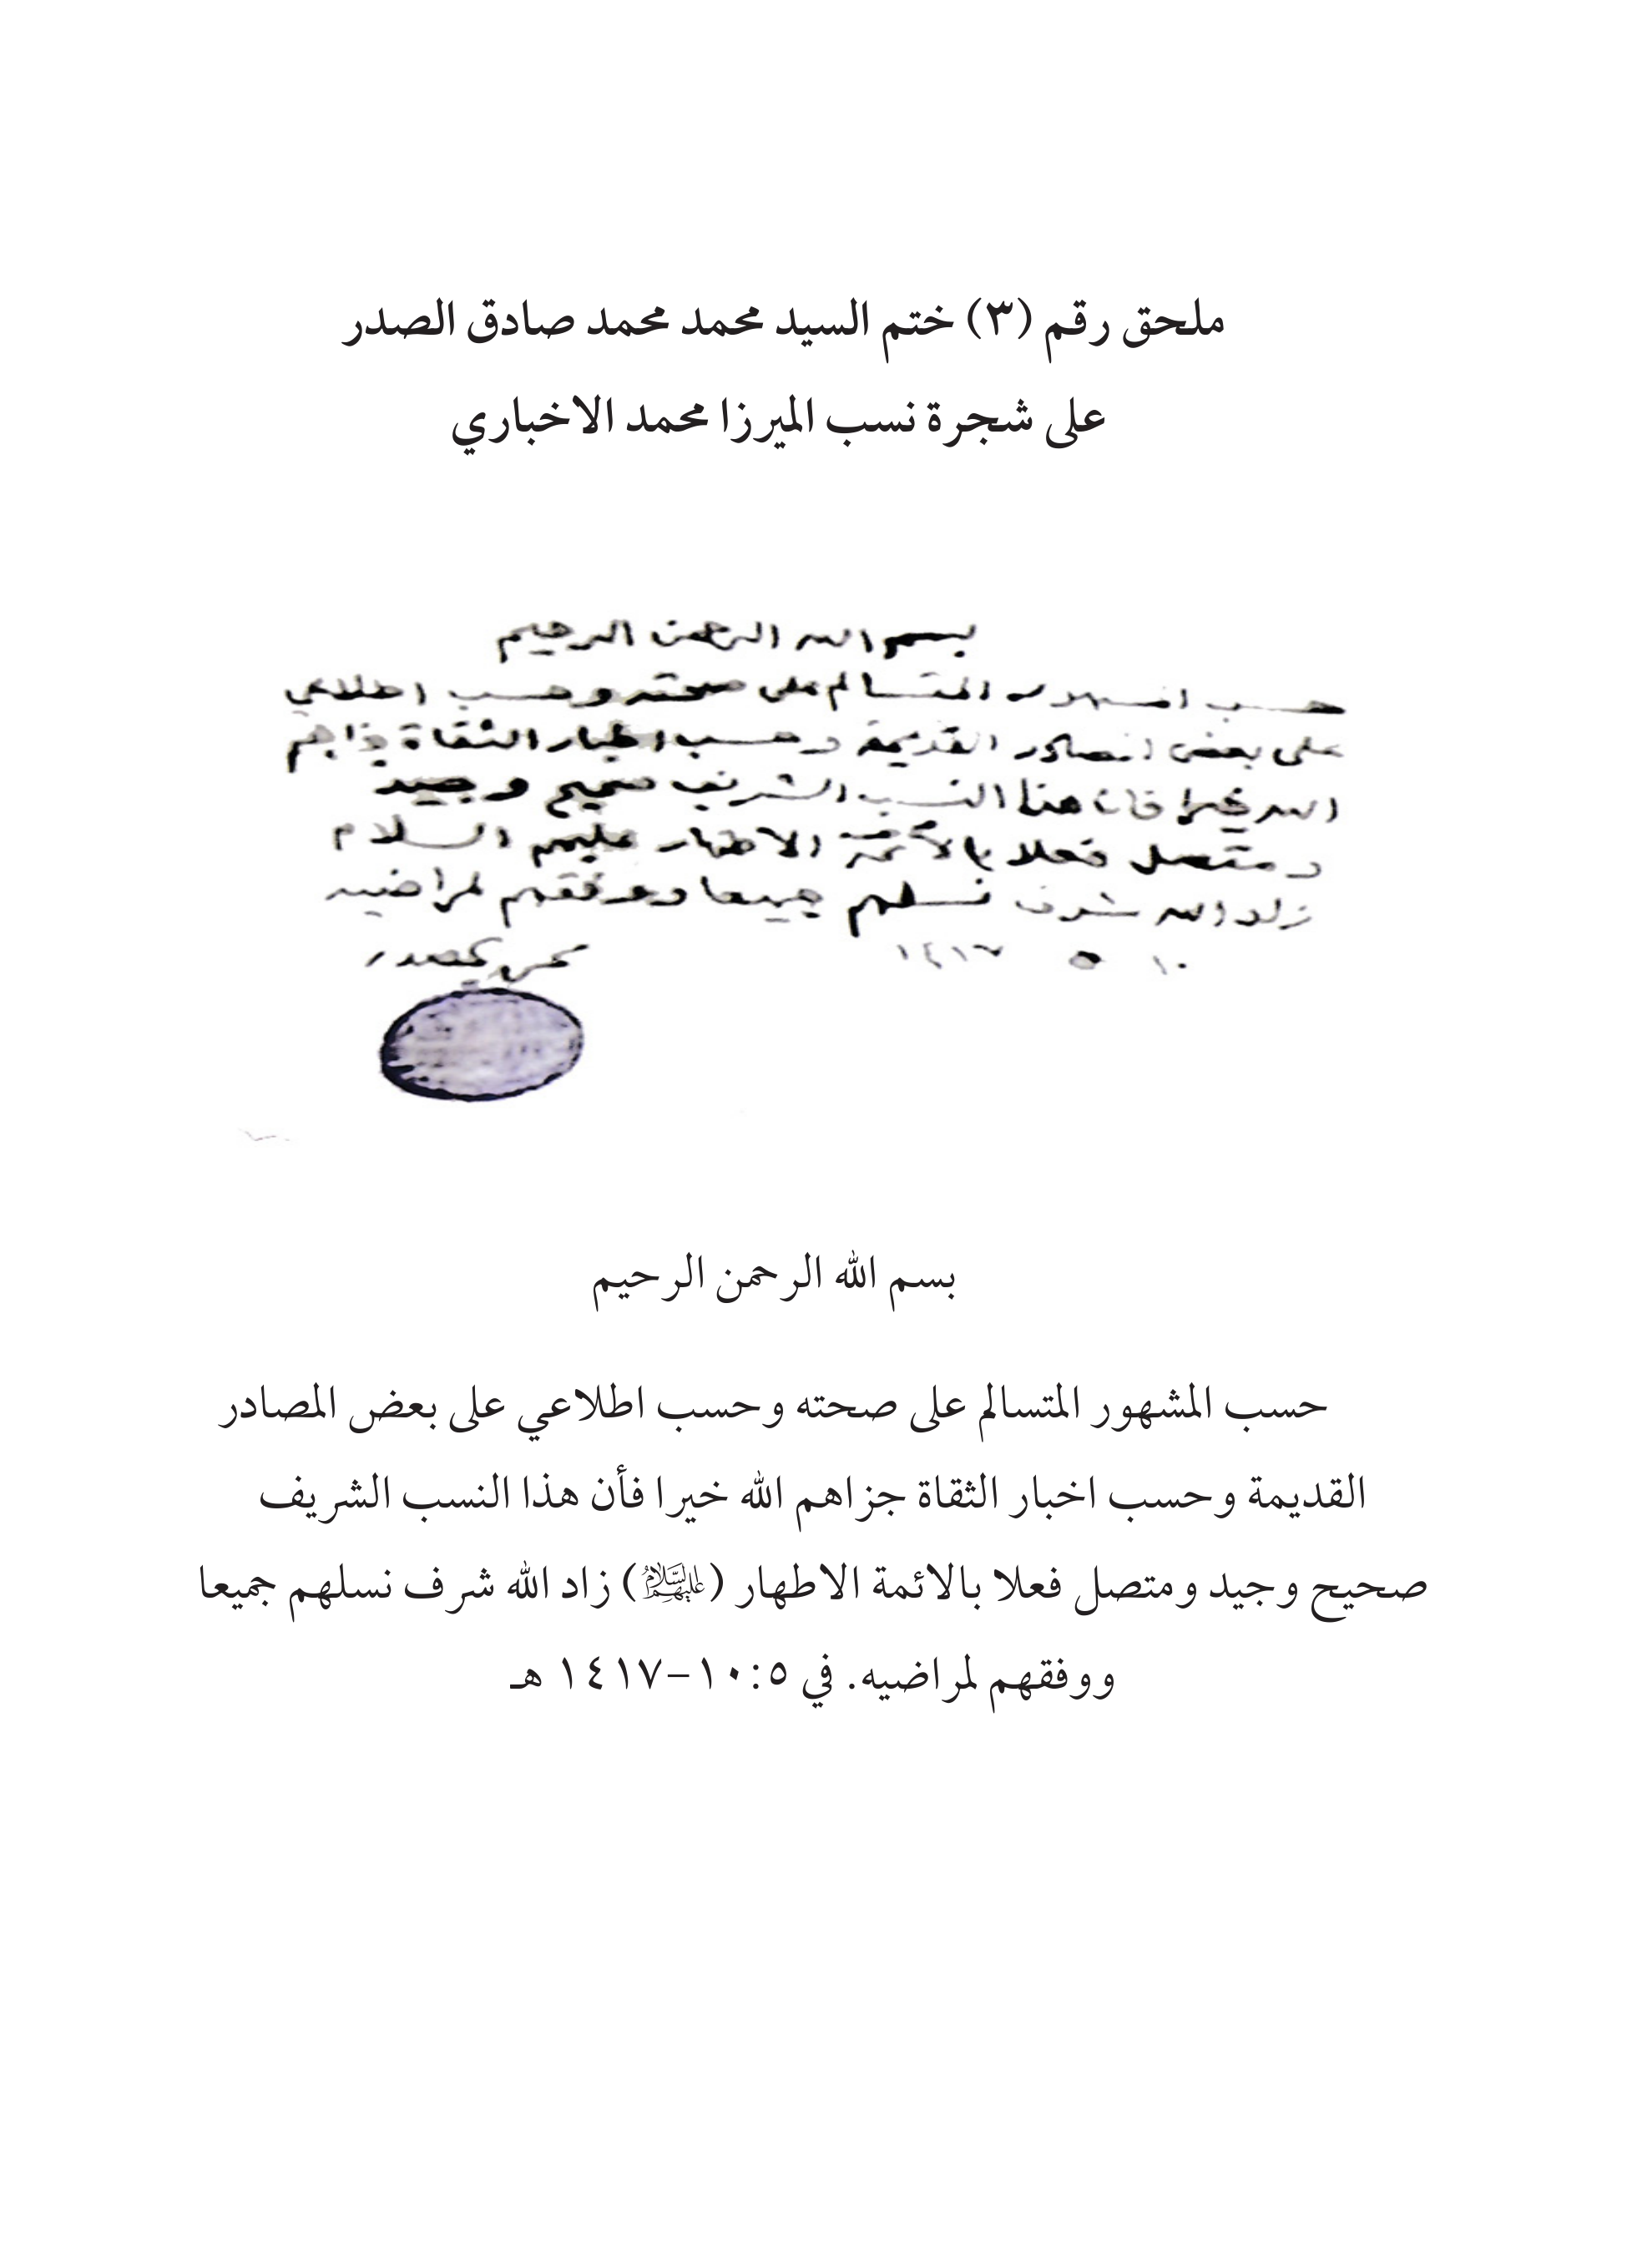 ملحق رقم (٣) ختم السيد محمد محمد صادق الصدر
على شجرة نسب الميرزا محمد الاخباري
بسم الله الرحمن الرحيم
حسب المتسالم على صحته وحسب اطلاعي
على بعض المصادر القديمة وحسب اخبار الثقاة جزاهم
الله خيرا فان هذا النسب الشريف صحيح وجيد
ومتصل فعلا بالأئمة الاطهار عليهم السلام
زاد الله شرف نسلهم جميعا ووفقهم لمراضيه
١٠ ٥ ١٤١٧
بسم الله الرحمن الرحيم
حسب المشهور المتسالم على صحته وحسب اطلاعي على بعض المصادر
القديمة وحسب اخبار الثقاة جزاهم الله خيرا فأن هذا النسب الشريف
صحيح وجيد ومتصل فعلا بالائمة الاطهار (عليهم السلام) زاد الله شرف نسلهم جميعا
ووفقهم لمراضيه. في ٥:١٠-١٤١٧ هـ